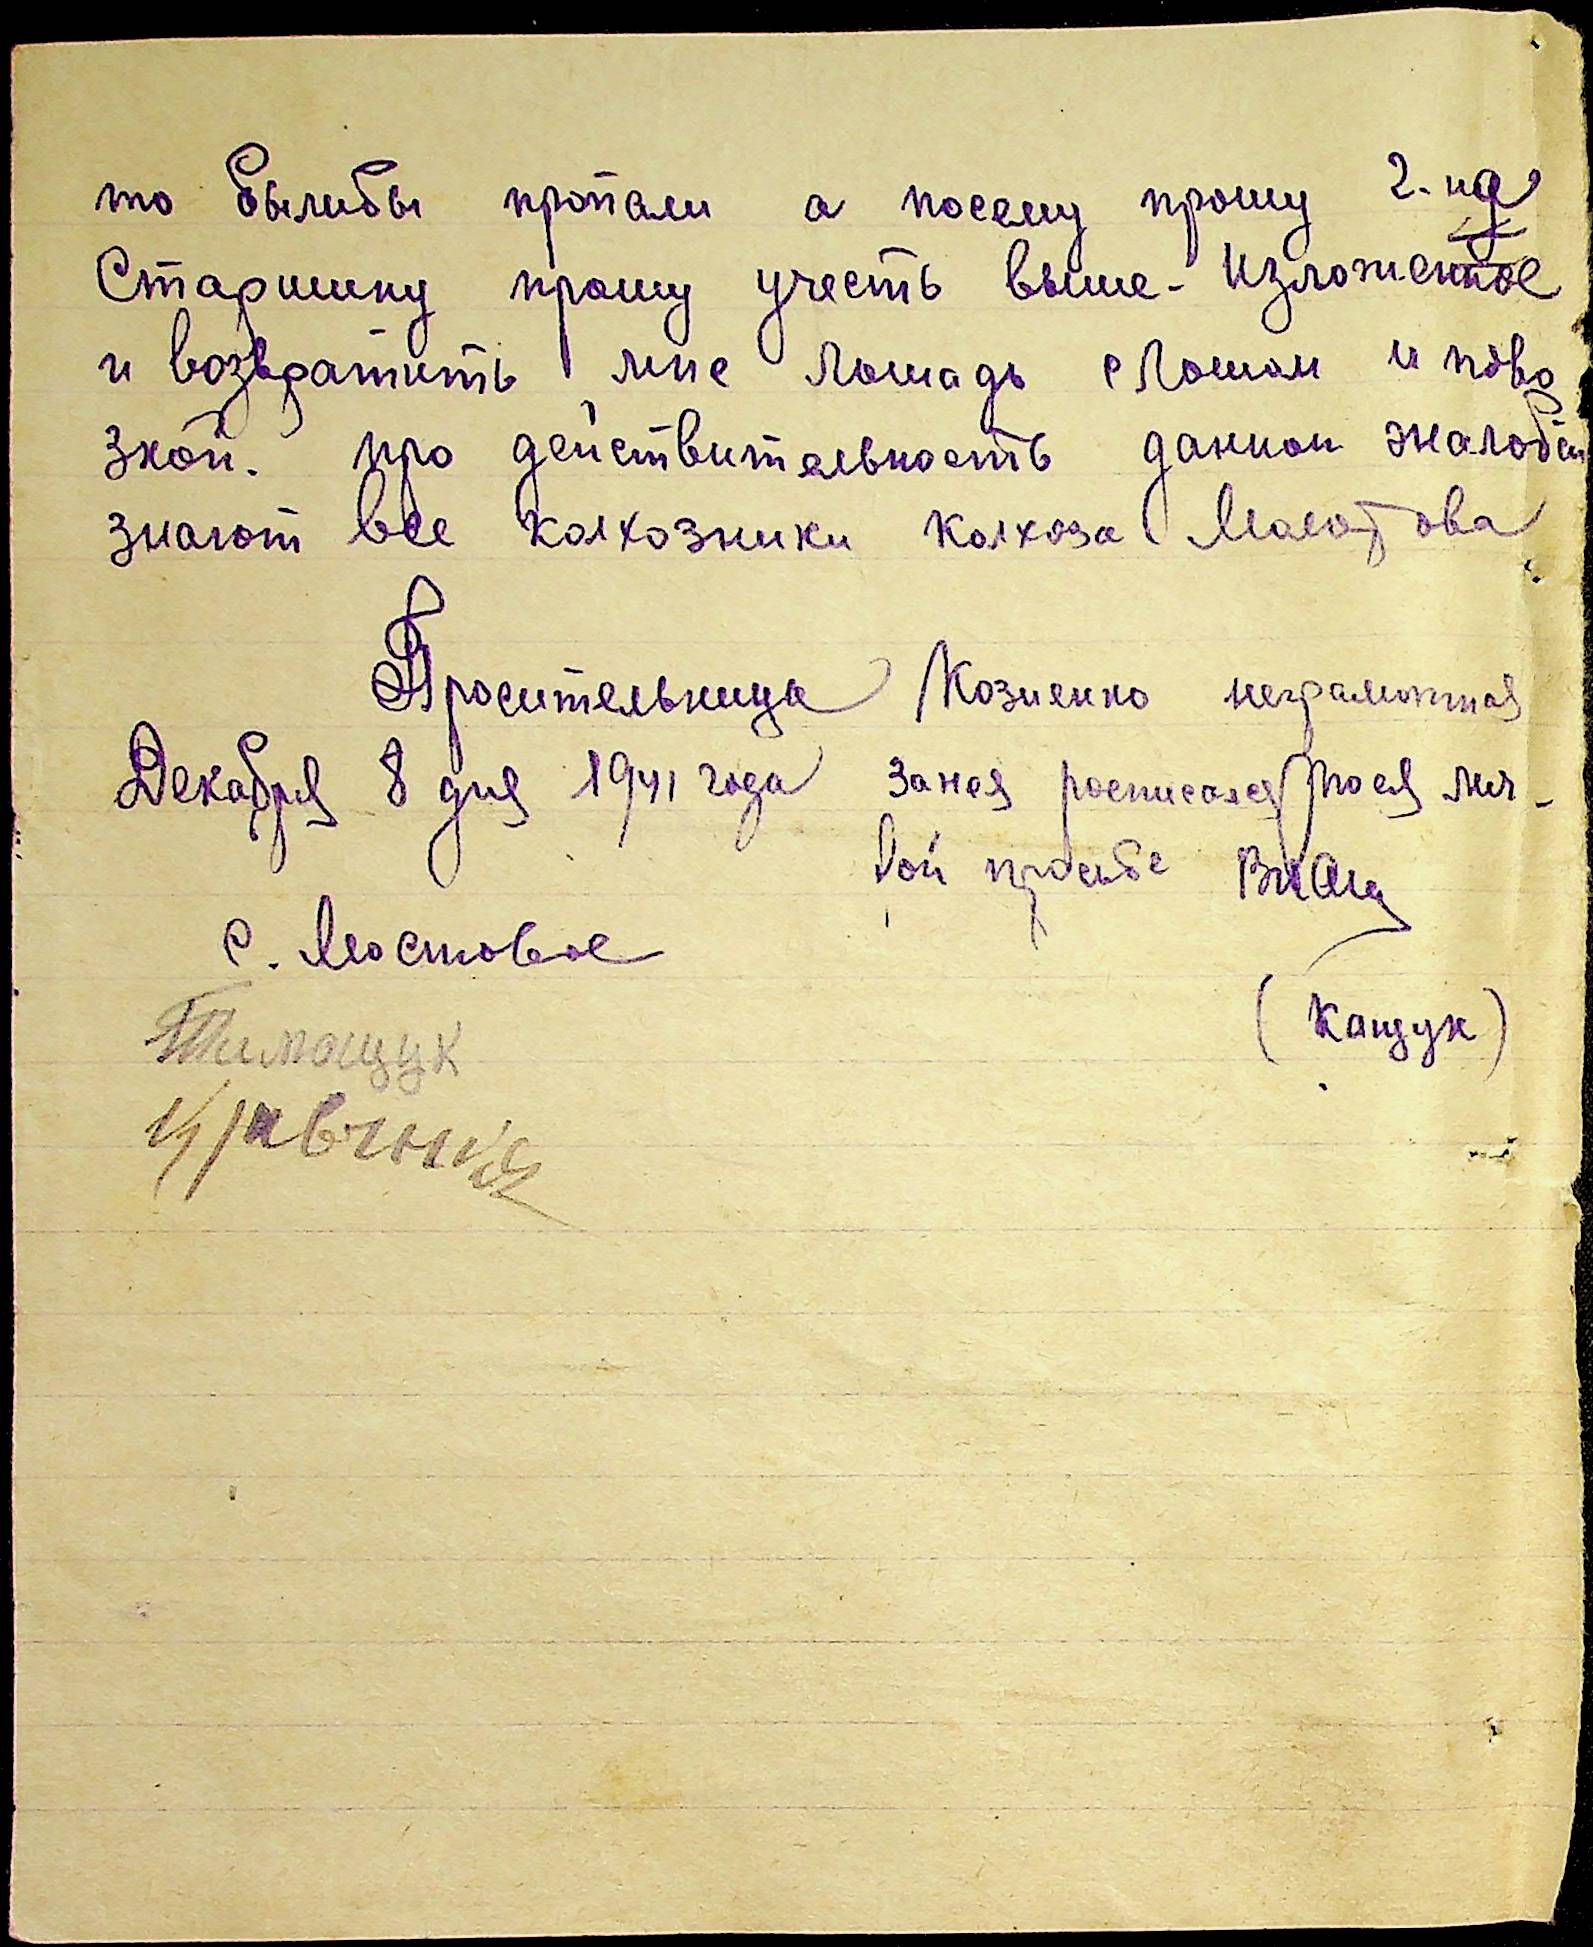 то былибы пропали а посему прошу 2-на
Старшину прошу учесть выше-изложенное
и возвратить мне лошадь слошам и пово
зкой. про действительность данной жалобы
знают все колхозники колхоза Молотова
Просительница Козиенко неграмотная
Декабря 8 дня 1941 года занея росписался поея лич-
ной просьбе
с. Мостовое
(Кащук)
Тимощук